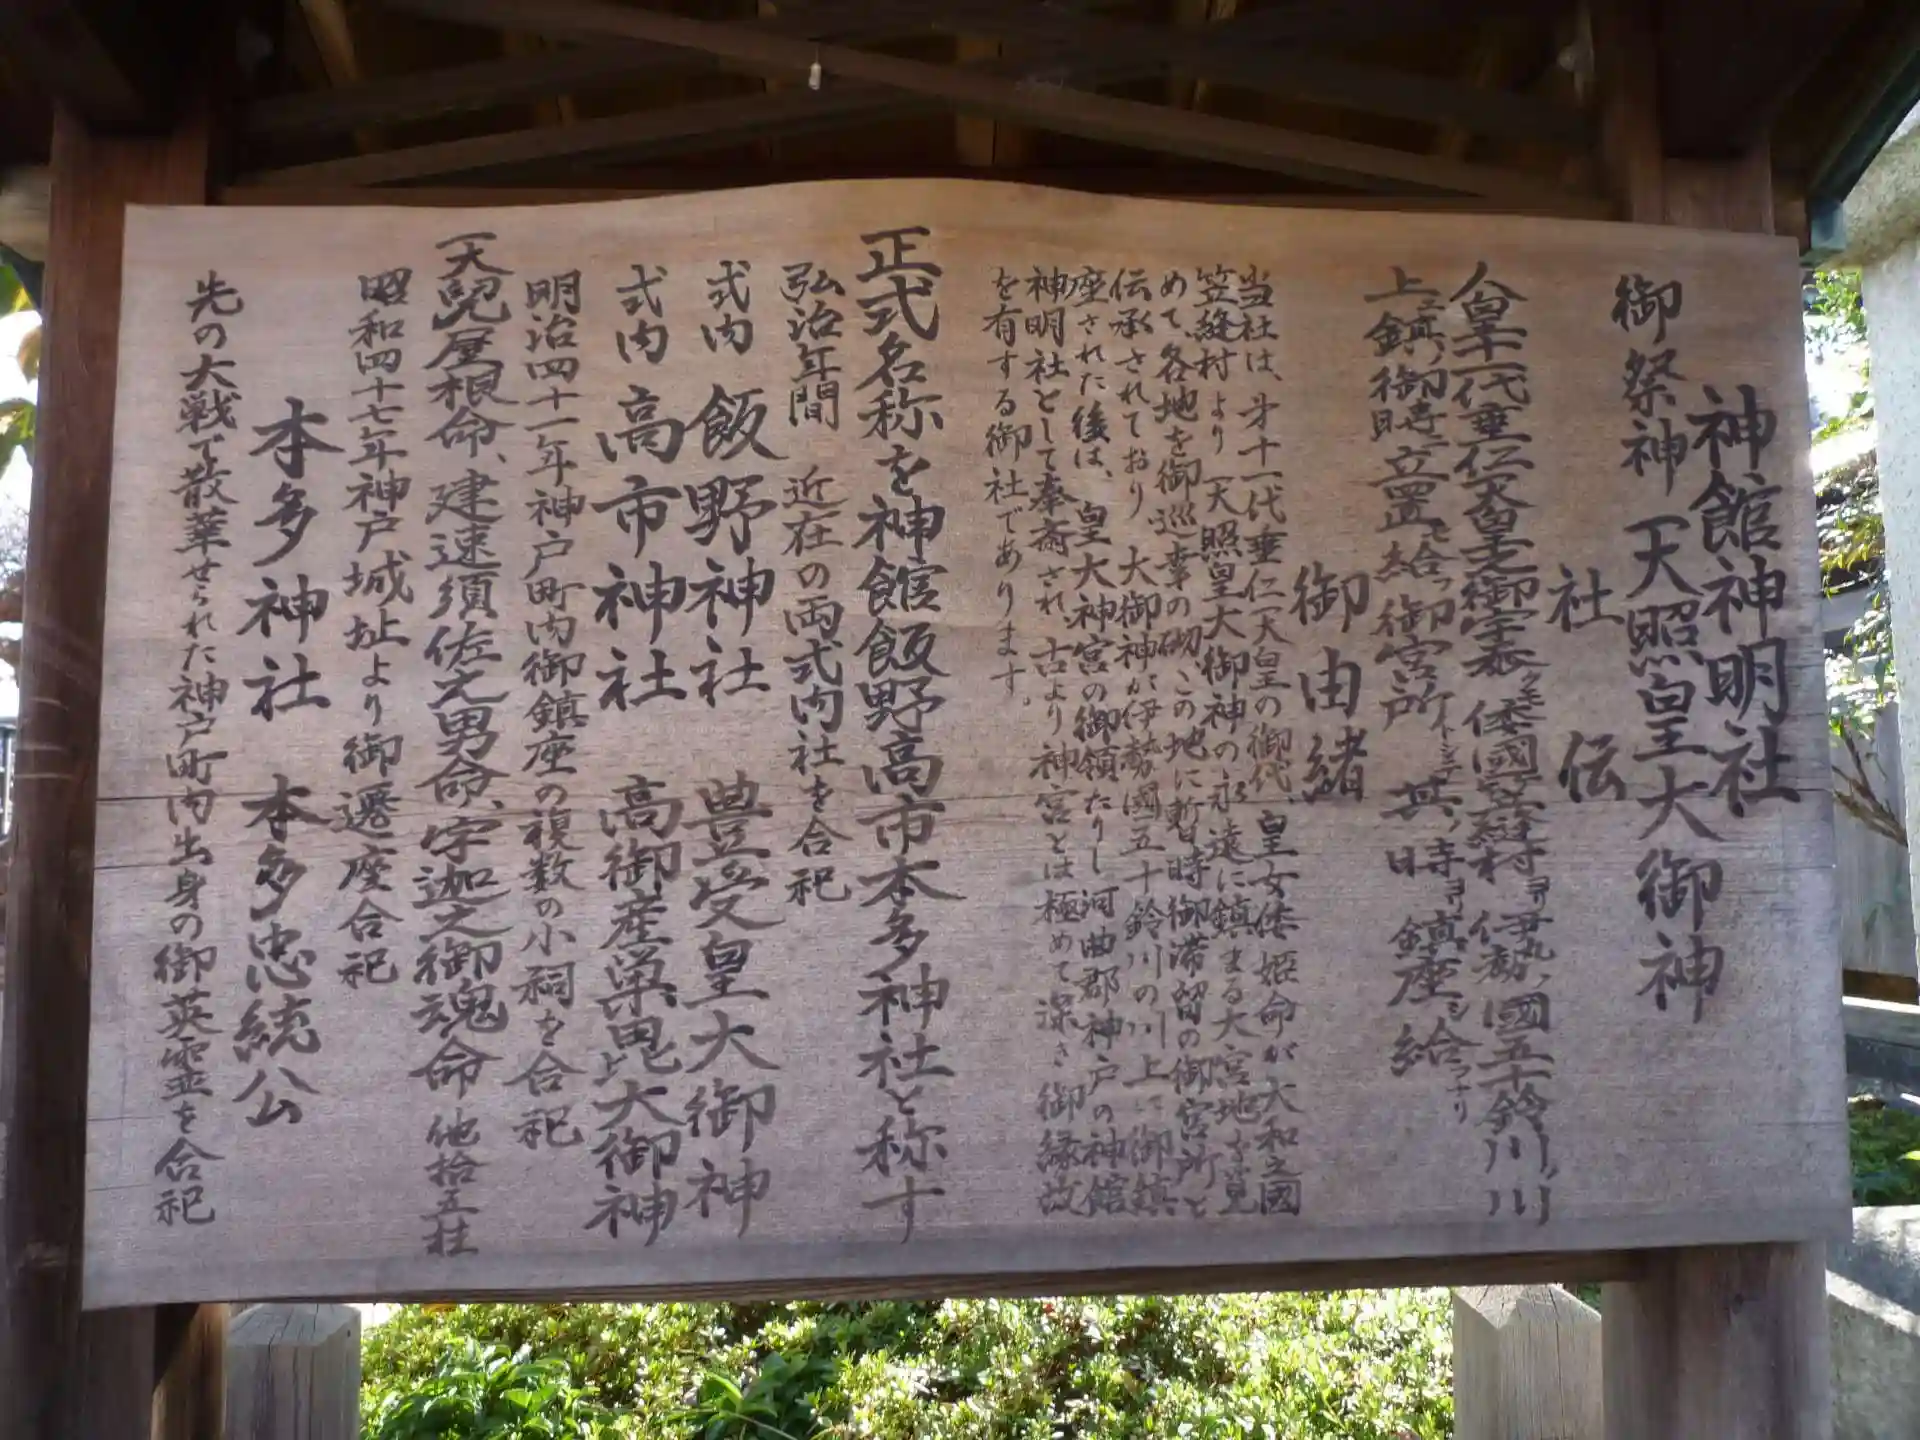 神館神明社
御祭神 天照皇大御神
社伝
人皇十一代垂仁天皇之御宇 倭國笠縫村ヨリ伊勢國五十鈴川ノ川
上ニ鎮ノ御時 立置セ給フ御宮所 其ノ時 鎮座シ給
御由緒
当社は、才十一代垂仁天皇の御代、皇女倭姫命が大和之國
笠縫村より 天照皇大御神の永遠に鎮まる大宮地を覓
めて、各地を御巡幸の砌、この地に暫時御滞留の御宮所と
伝承されており 大御神が伊勢國五十鈴川の川上に御鎮
座された後は、皇大神宮の御領たりし河曲郡神戸の神館
神明社として奉斎され、古より神宮とは極めて深き御縁故
を有する御社であります。
正式名称を神館飯野高市本多神社と称す
弘治年間 近在の両式内社を合祀
式内 飯野神社 豊受皇大御神
式内 高市神社 高御産巣毘大御神
明治四十一年神戸町内御鎮座の複数の小祠を合祀
天児屋根命、建速須佐之男命、宇迦之御魂命 他拾五柱
昭和四十七年神戸城址より御遷座合祀
本多神社 本多忠統公
先の大戦で散華せられた神戸町内出身の御英霊を合祀